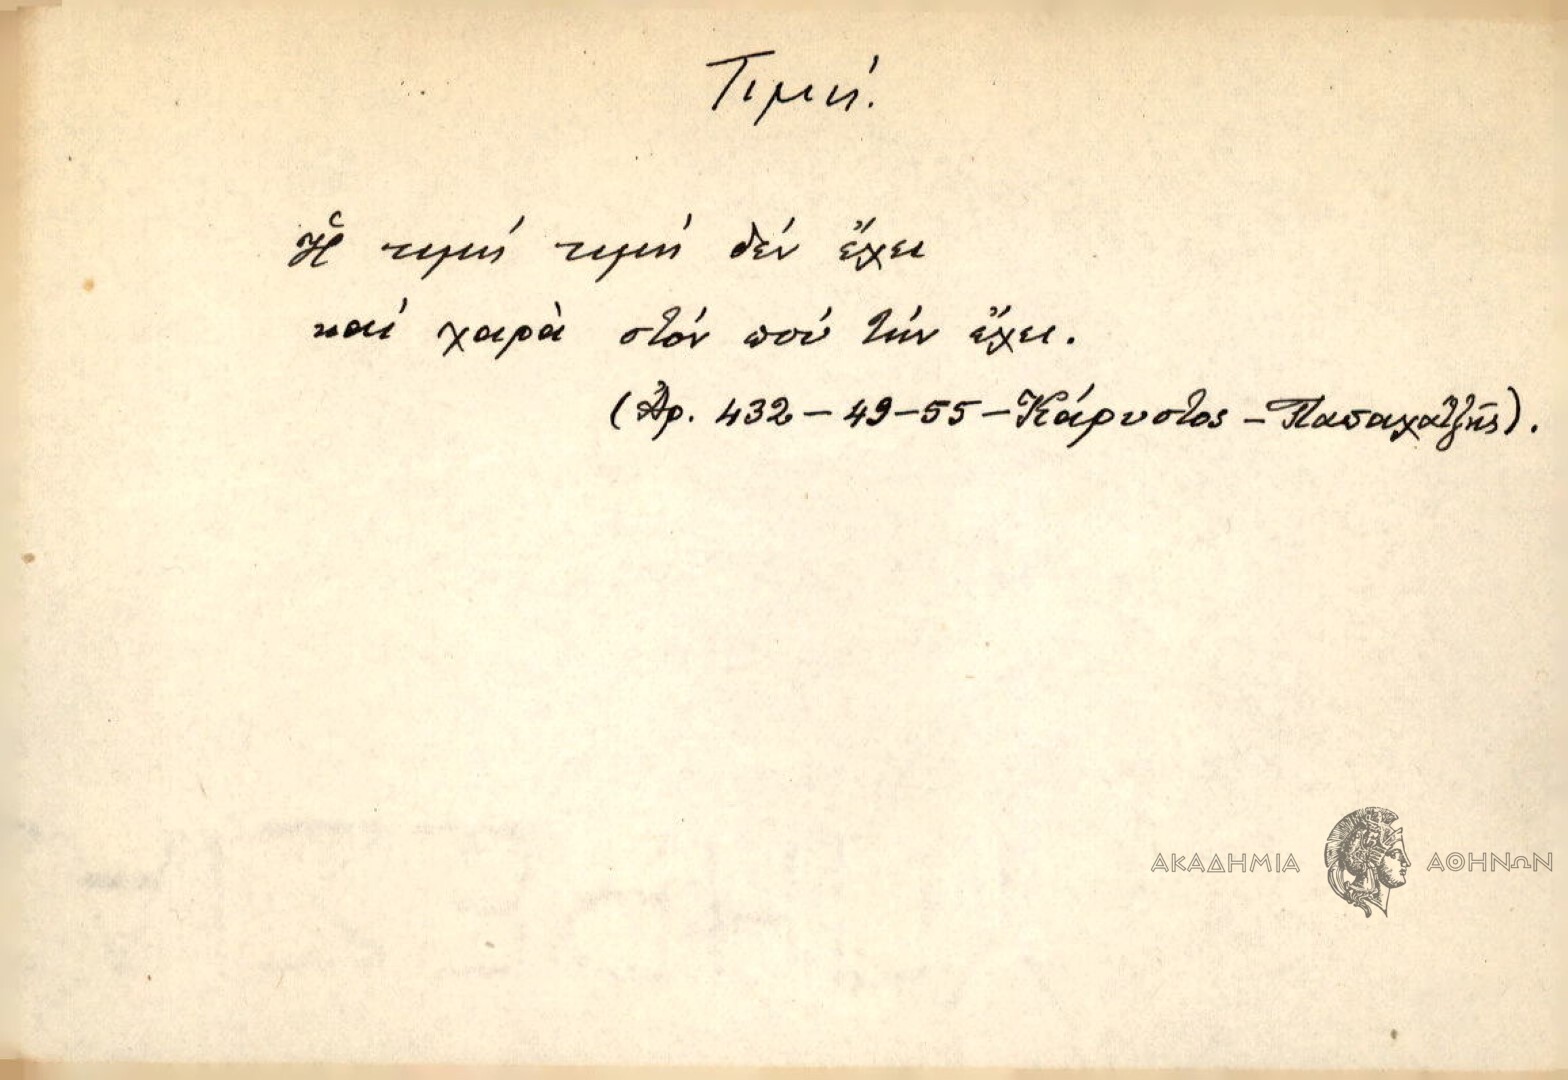 Τιμή.
Ἡ τιμή τιμή δέν ἔχει
καί χαρὰ στόν πού τήν ἔχει.
(Ἀρ. 432 – 49 – 55 – Κάρυστος – Παπαχατζῆς).
ΑΚΑΔΗΜΙΑ ΑΘΗΝΩΝ